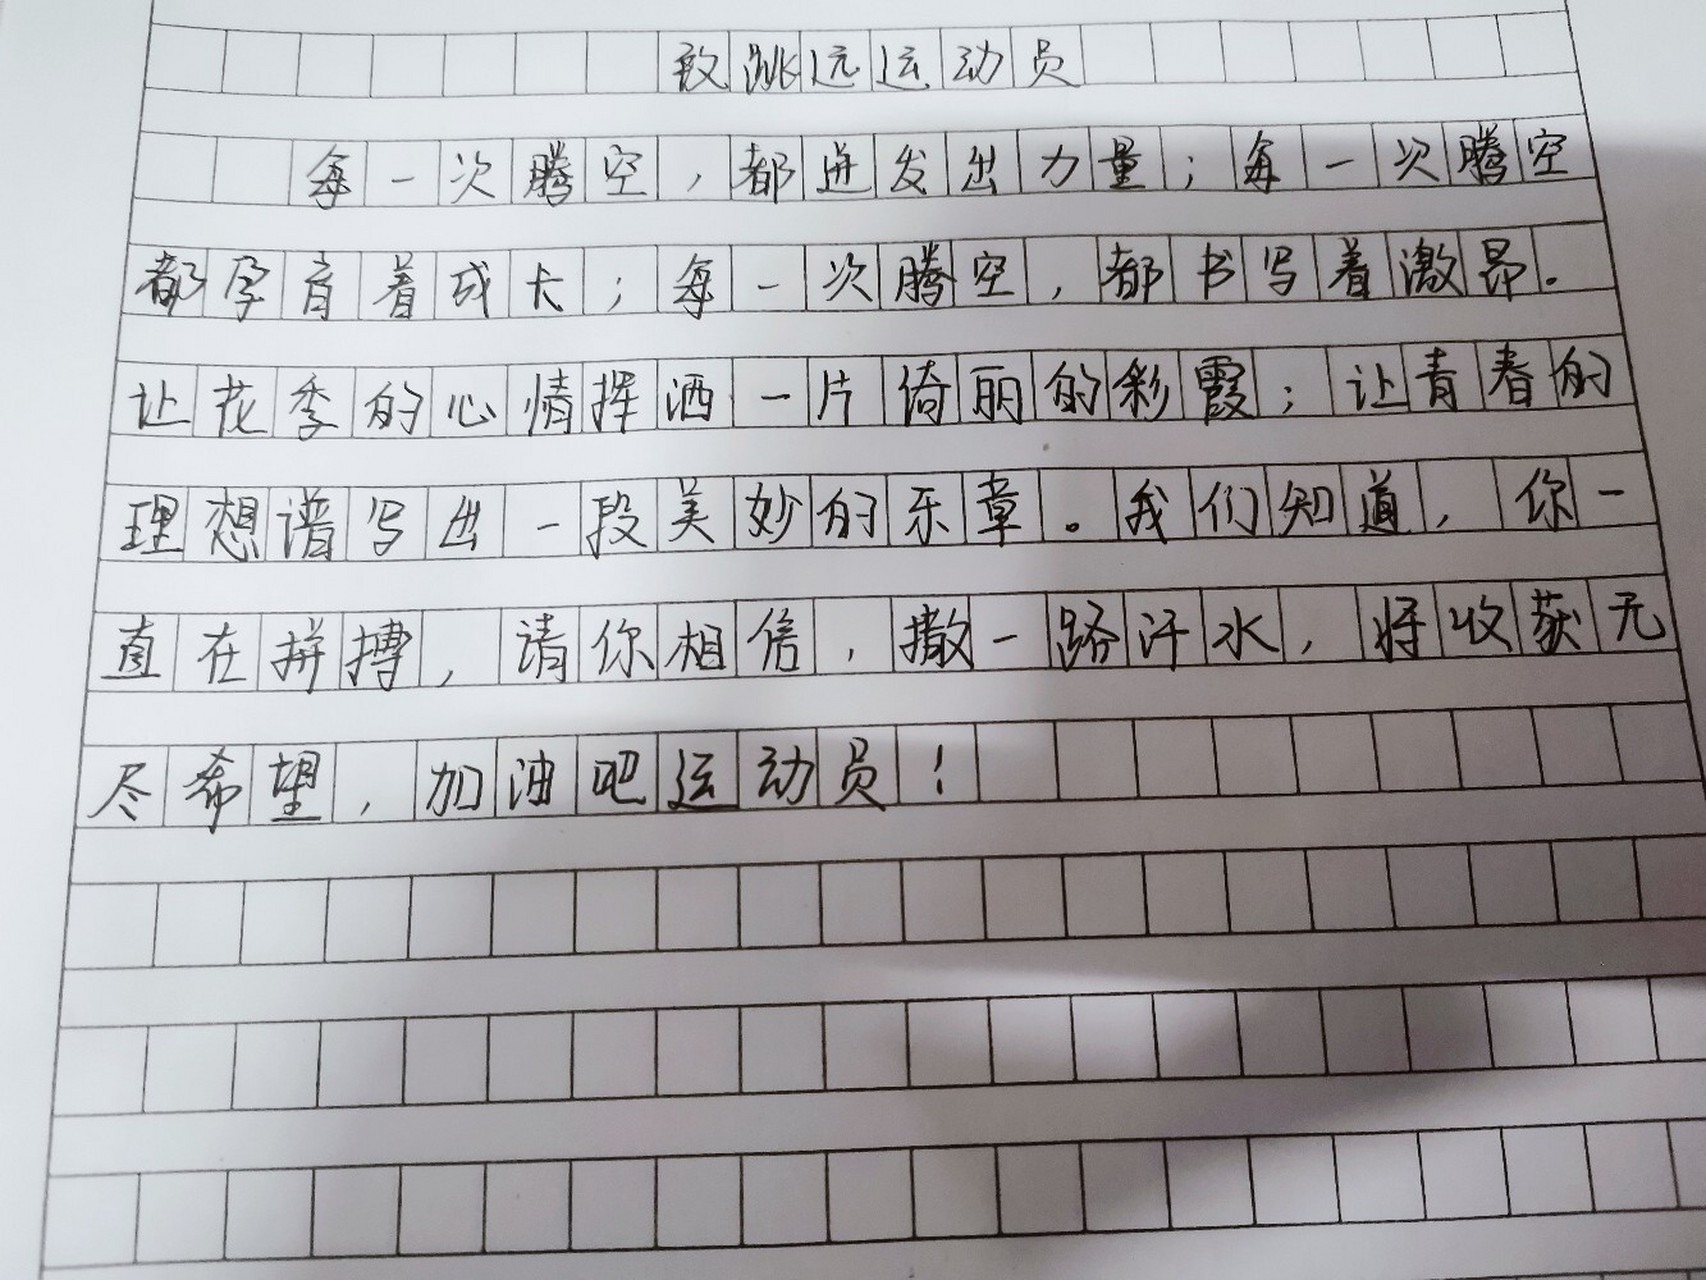 致跳远运动员
每一次腾空，都迸发出力量；每一次腾空
都孕育着成长；每一次腾空，都书写着激昂。
让花季的心情挥洒一片绮丽的彩霞；让青春的
理想谱写出一段美妙的乐章。我们知道，你一
直在拼搏，请你相信，撒一路汗水，将收获无
尽希望，加油吧运动员！